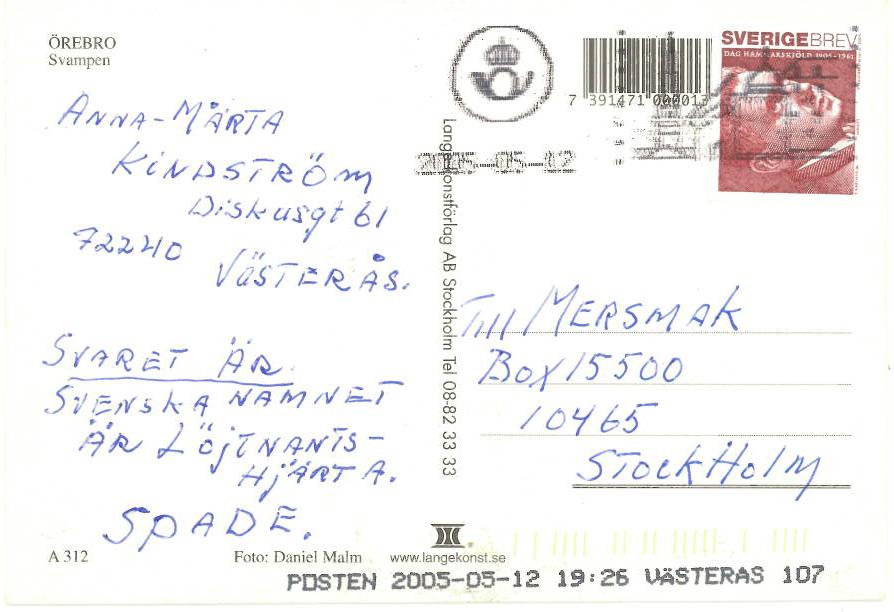 ÖREBRO
Svampen
ANNA-MÄRTA
KINDSTRÖM
Diskusgt 61
72240
VÄSTERÅS.
SVARET ÄR
SVENSKA NAMNET
ÄR LÖJTNANTS-
HJÄRTA.
SPADE.
A 312
Foto: Daniel Malm
www.langekonst.se
Lange Konstförlag AB Stockholm Tel 08-82 33 33
7 391471 000013
SVERIGE BREV
DAG HAMMARSKJÖLD 1905-1961
2005-05-12
Till MERSMAK
Box 15500
10465
STOCKHOLM
POSTEN 2005-05-12 19:26 VÄSTERAS 107